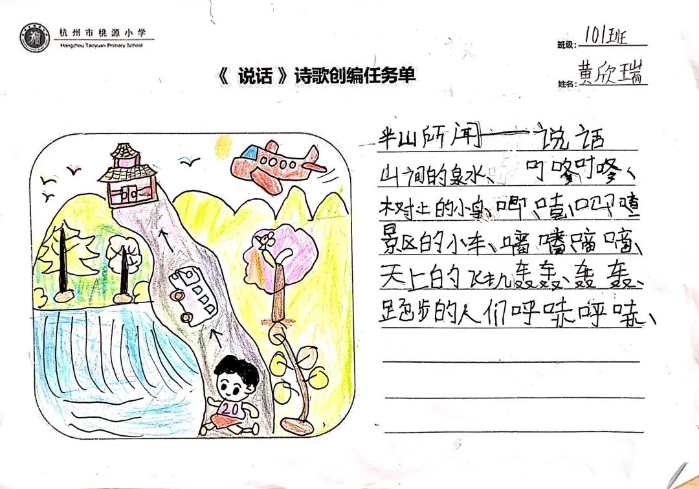 杭州市桃源小学
Hangzhou Taoyuan Primary School
班级: 101班
姓名: 黄欣瑞
《 说话 》诗歌创编任务单
半山所闻——说话
山间的泉水、叮咚叮咚、
树上的小鸟、唧嘻、唧嘻
景区的小车、嘀嘀嘀
天上的飞机轰轰、轰轰、
跑步的人们呼哧呼哧、
20